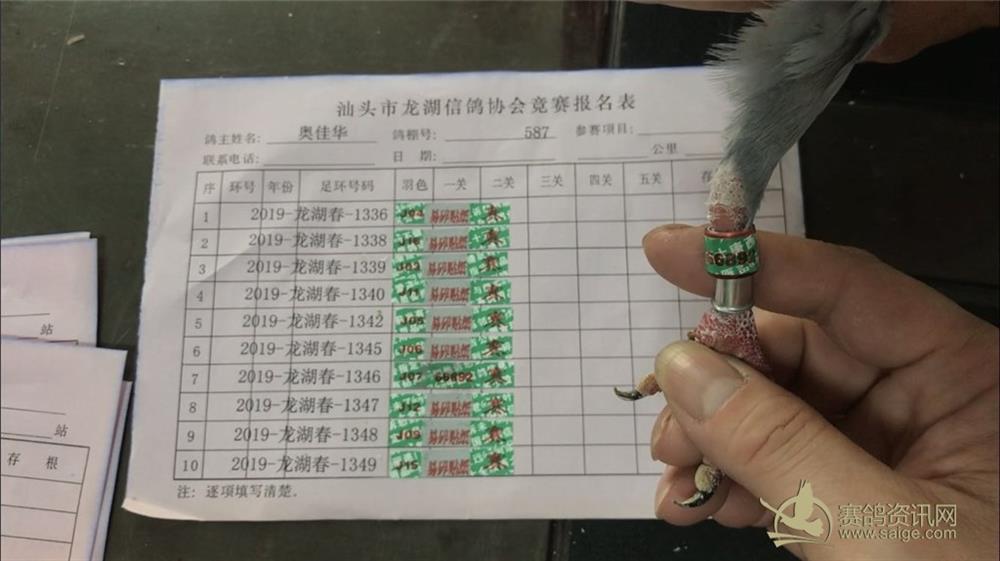 汕头市龙湖信鸽协会竞赛报名表
鸽主姓名: 奥佳华 鸽棚号: 587 参赛项目:
联系电话: 日 期: 公里
序 环号 年份 足环号码 羽色 一关 二关 三关 四关 五关 存
1 2019-龙湖春-1336 J04 易碎贴纸
2 2019-龙湖春-1338 J16 易碎贴纸
3 2019-龙湖春-1339 J03 易碎贴纸
4 2019-龙湖春-1340 J11 易碎贴纸
5 2019-龙湖春-1342 J05 易碎贴纸
6 2019-龙湖春-1345 J06 易碎贴纸
7 2019-龙湖春-1346 J07 66892
8 2019-龙湖春-1347 J12 易碎贴纸
9 2019-龙湖春-1348 J09 易碎贴纸
10 2019-龙湖春-1349 J15 易碎贴纸
注: 逐项填写清楚。
66892
站
站
存 根
赛鸽资讯网
www.saige.com